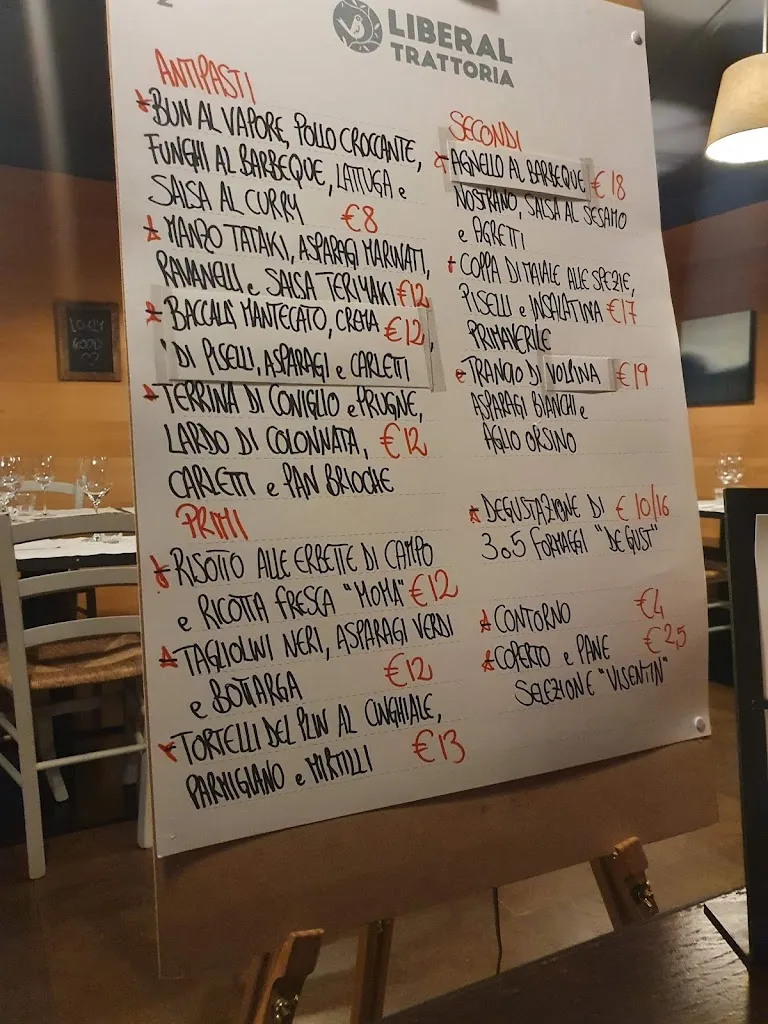 LIBERAL
TRATTORIA
ANTIPASTI
BUN AL VAPORE, POLLO CROCCANTE,
FUNGHI AL BARBEQUE, LATTUGA e
SALSA AL CURRY €8
MANZO TATAKI, ASPARAGI MARINATI,
RAVANELLI e SALSA TERIYAKI €12
BACCALÀ MANTECATO, CREMA €12,
DI PISELLI, ASPARAGI e CARLETTI
TERRINA DI CONIGLIO e PRUGNE,
LARDO DI COLONNATA, €12
CARLETTI e PAN BRIOCHE
PRIMI
RISOTTO ALLE ERBETTE DI CAMPO
e RICOTTA FRESCA "MOMA" €12
TAGLIOLINI NERI, ASPARAGI VERDI
e BOTTARGA €12
TORTELLI DEL PLIN AL CINGHIALE,
PARMIGIANO e MIRTILLI €13
SECONDI
AGNELLO AL BARBEQUE €18
NOSTRANO, SALSA AL SESAMO
e AGRETTI
COPPA DI MAIALE ALLE SPEZIE,
PISELLI e INSALATINA €17
PRIMAVERILE
TRANCIO DI VOLPINA €19
ASPARAGI BIANCHI e
AGLIO ORSINO
DEGUSTAZIONE DI €10/16
3 o 5 FORMAGGI "DE GUST"
CONTORNO €4
COPERTO e PANE €2,5
SELEZIONE "VISENTIN"